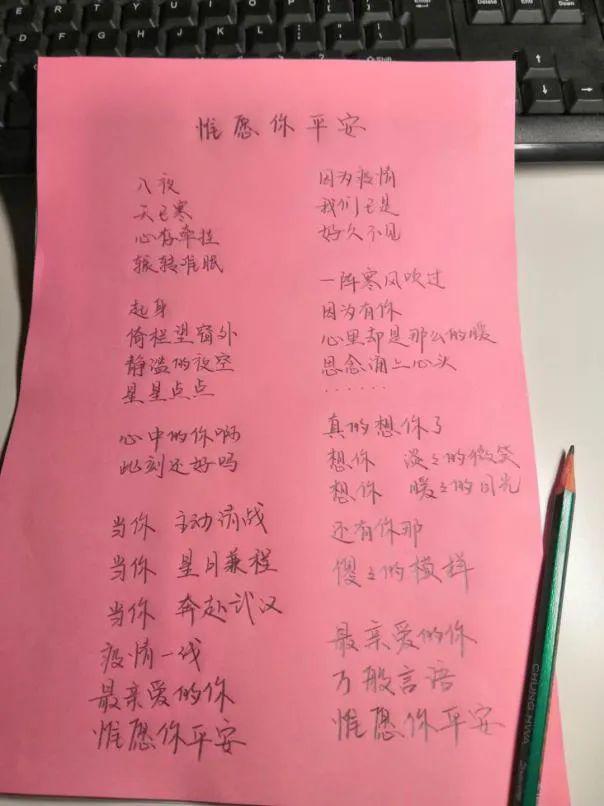 惟愿你平安
入夜
天已寒
心存牵挂
辗转难眠
起身
倚栏望窗外
静滥的夜空
星星点点
心中的你啊
此刻还好吗
当你 主动请战
当你 星月兼程
当你 奔赴武汉
疫情一线
最亲爱的你
惟愿你平安
因为疫情
我们已是
好久不见
一阵寒风吹过
因为有你
心里却是那么的暖
思念涌上心头
......
真的想你了
想你 淡々的微笑
想你 暖々的目光
还有你那
傻々的模样
最亲爱的你
万般言语
惟愿你平安
CHUNG HWA
Delete
End
Shift